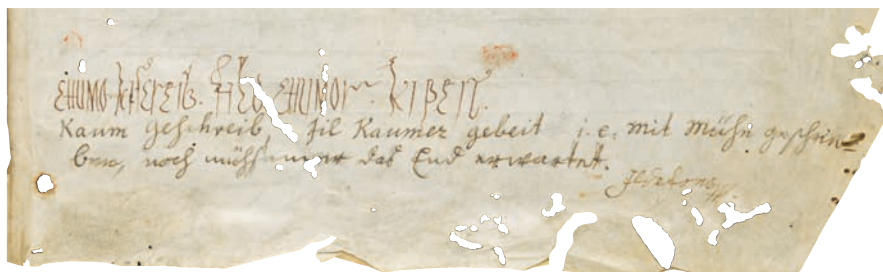 CHUMO KISCREIB. FILO CHUMOR KIPEIT.
Kaum geschreib, fil Kaumer gebeit i.e. mit Mühe geschrie=
ben, noch mühsamer das End erwartet.